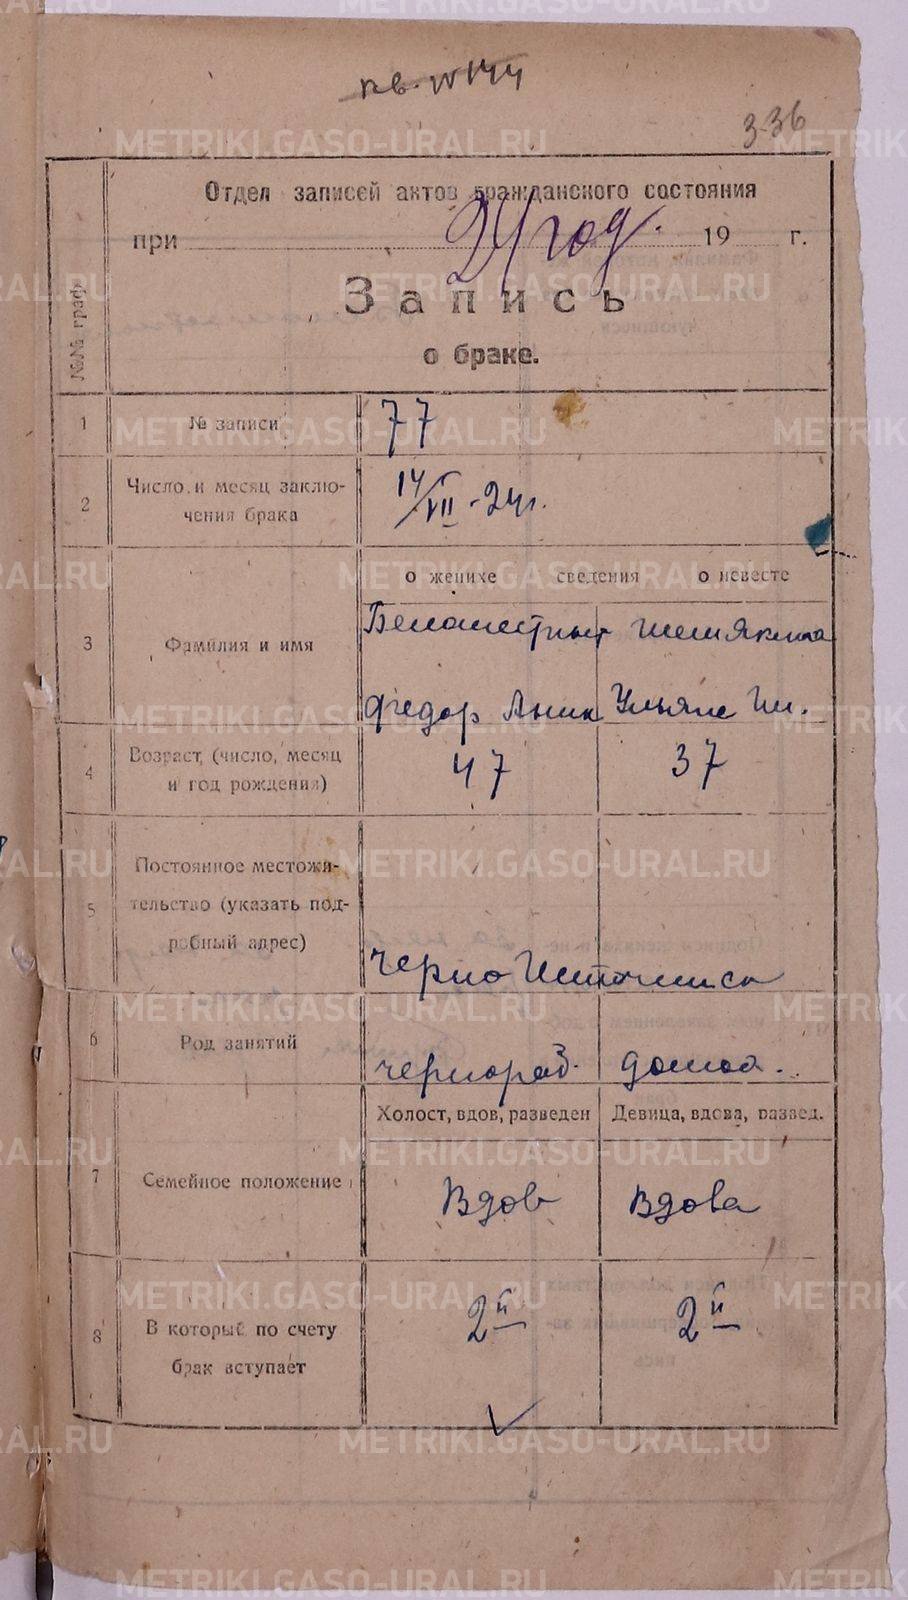 кв. № 144
336
Отдел записей актов гражданского состояния
при 24 год. 19 г.
Запись
о браке.
№№ граф
1 № записи 77
2 Число и месяц заключения брака 14/VII-24г.
о женихе сведения о невесте
3 Фамилия и имя
Шемякина
Федор
4 Возраст, (число, месяц
и год рождения) 47 37
5 Постоянное местожи-
тельство (указать под-
робный адрес)
6 Род занятий чернораб. домоа..
Холост, вдов, разведен Девица, вдова, развед.
7 Семейное положение Вдов Вдова
8 В который по счету
брак вступает 2й 2й
METRIKI.GASO-URAL.RU